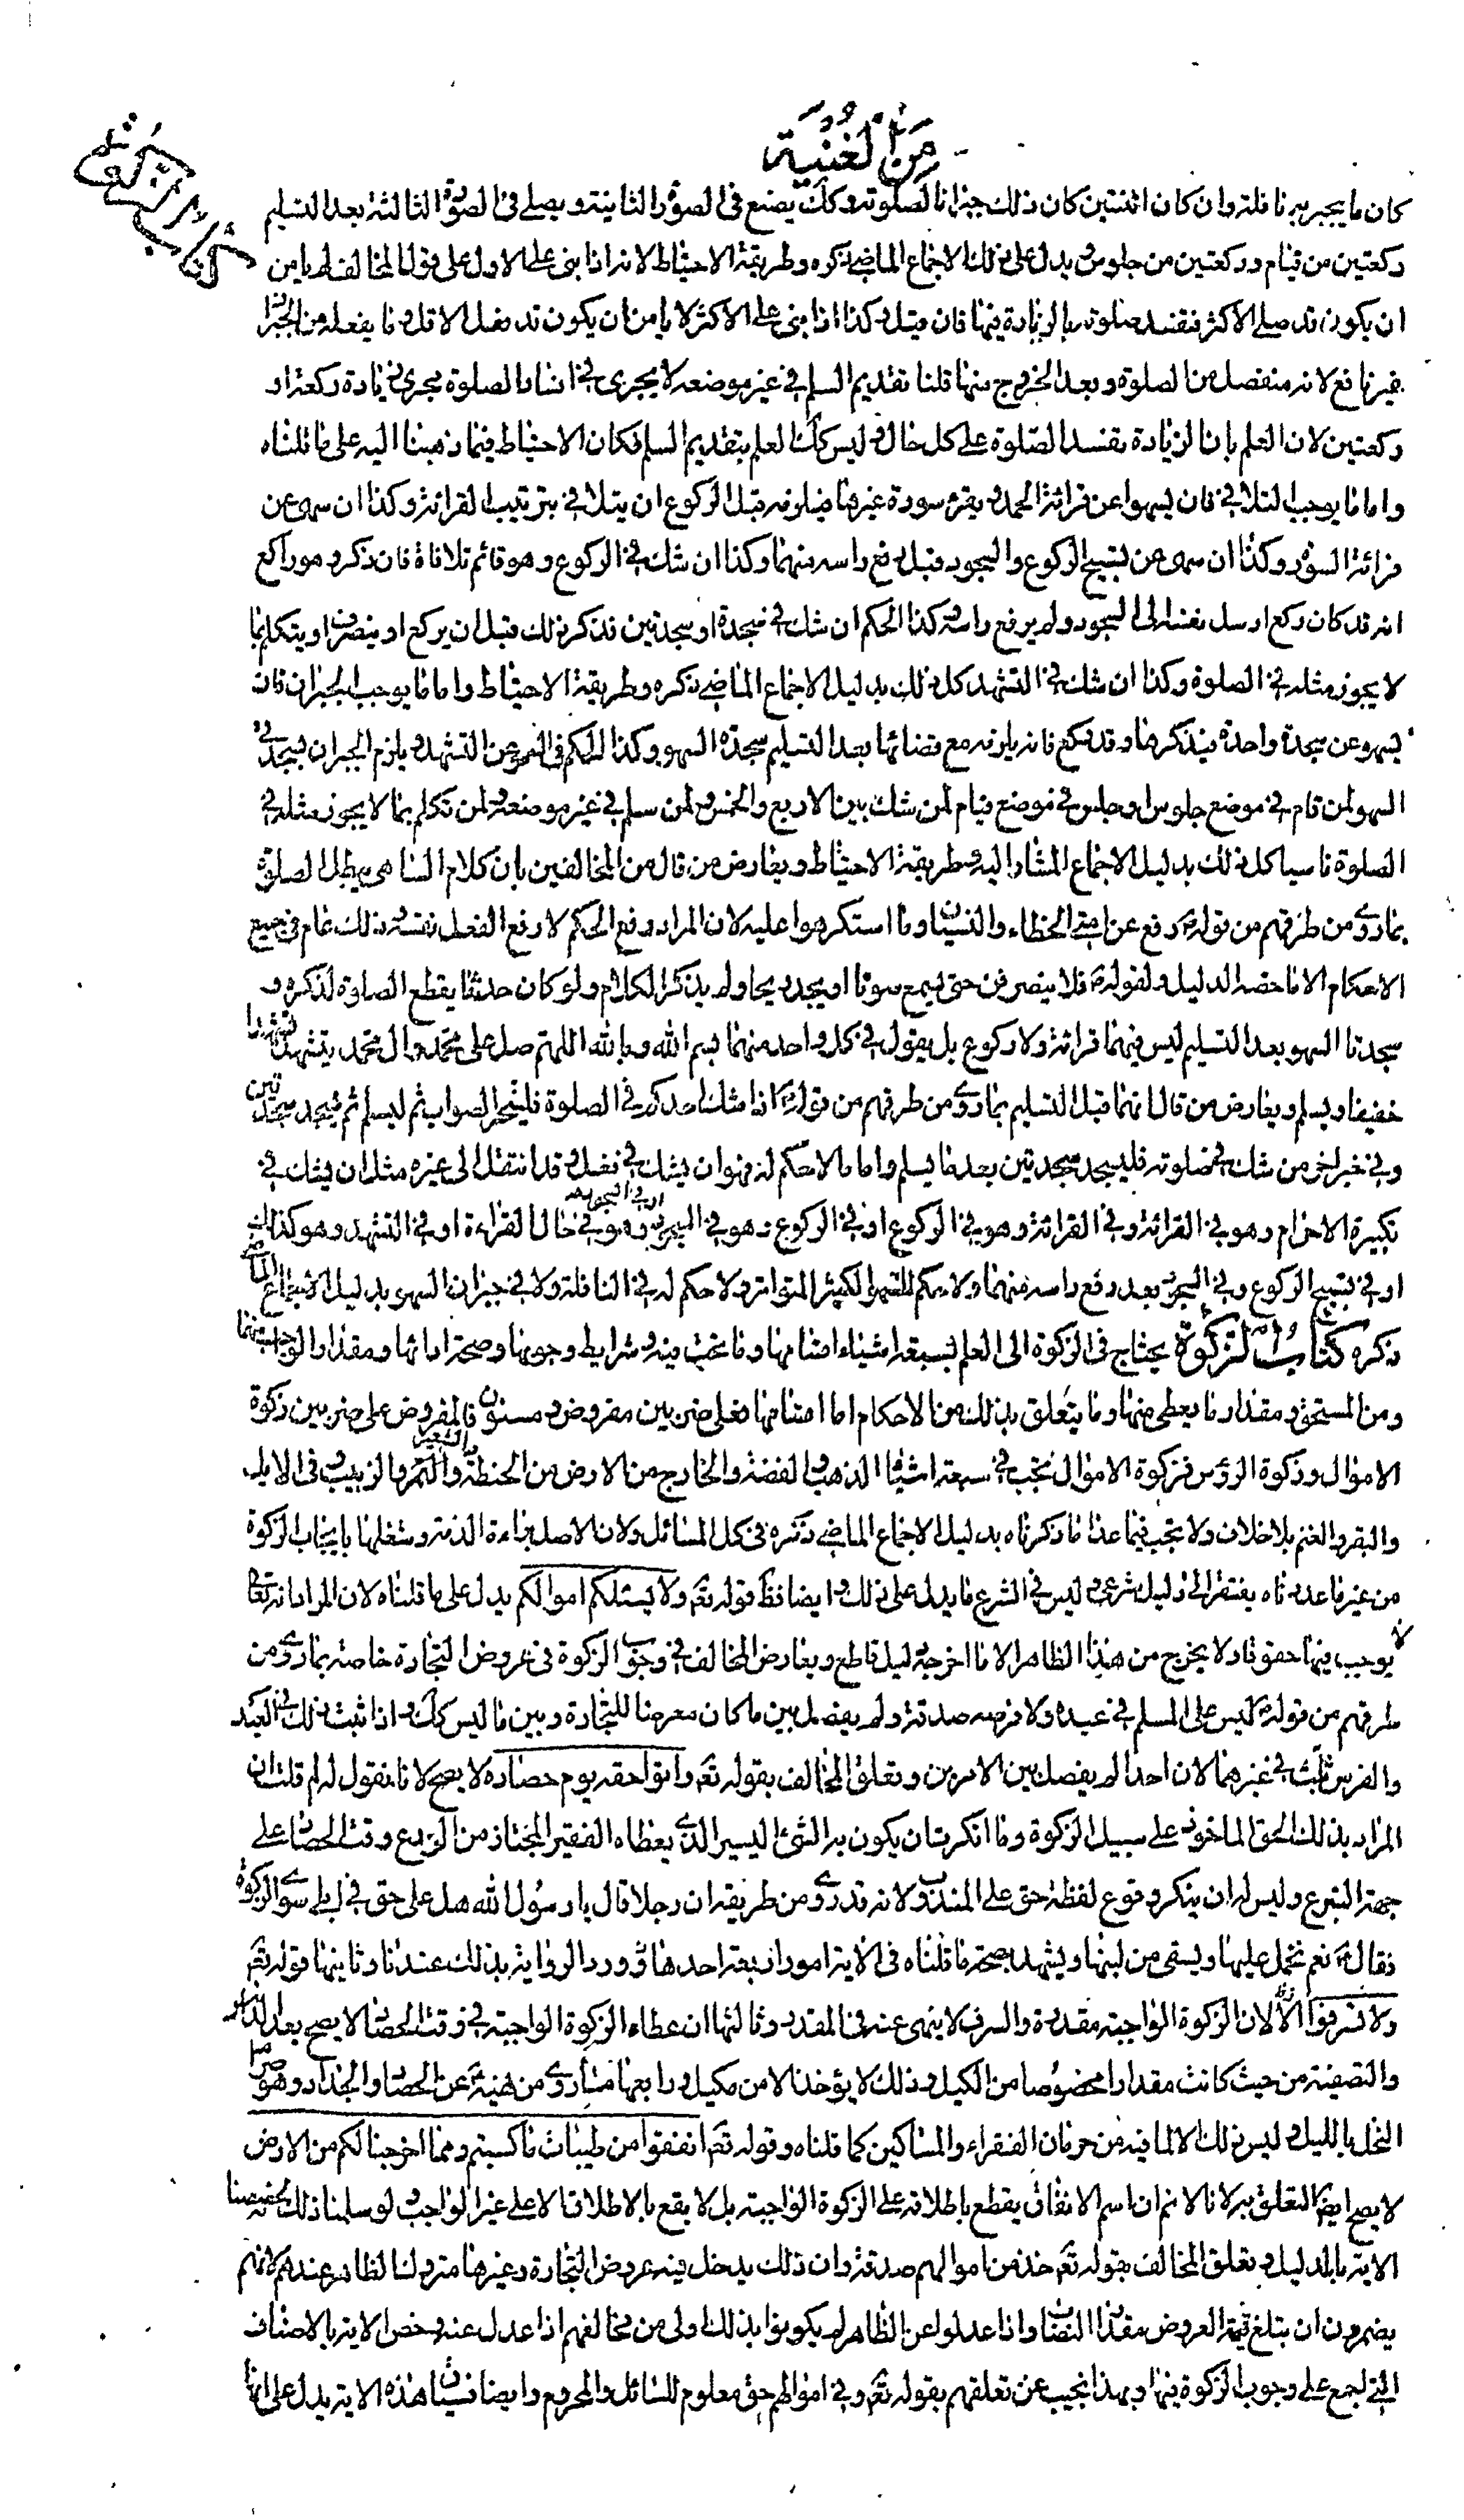 من الغنية
كتاب الزكوة
كان ما يجبر به نافلة وان كان اثنتين كان ذلك جبرانا لصلوته وكك يصنع فى الصورة الثانية ويصلى فى الصورة الثالثة بعد التسليم
ركعتين من قيام وركعتين من جلوس يدل على ذلك الاجماع الماضى ذكره وطريقة الاحتياط لانه اذا بنى على الاول على قول المخالف لم يامن
ان يكون قد صلى الاكثر فتفسد صلوته بالزيادة فيها فان قيل وكذا اذا بنى على الاكثر لا يامن ان يكون قد فعل الاقل وما يفعله من الجبران
غير نافع لانه منفصل من الصلوة وبعد الخروج منها قلنا تقديم السلم فى غير موضعه لا يجرى فى افساد الصلوة مجرى زيادة ركعة او
ركعتين لان العلم بان الزيادة تفسد الصلوة على كل حال وليس كك العلم بتقديم السلم فكان الاحتياط فيما ذهبنا اليه على ما قلناه
واما ما يوجب التلافى فان يسهوا عن قرائة الحمد ويقرء سورة غيرها فيلزمه قبل الركوع ان يتلافى بترتيب القرائة وكذا ان سهى عن
قرائة السورة وكذا ان سهى عن تسبيح الركوع والسجود قبل رفع راسه منهما وكذا ان شك فى الركوع وهو قائم تلافاه فان ذكر وهو راكع
انه قد كان ركع ارسل نفسه الى السجود ولم يرفع راسه وكذا الحكم ان شك فى سجدة او سجدتين فذكر ذلك قبل ان يركع او ينصرف او يتكلم بما
لا يجوز مثله فى الصلوة وكذا ان شك فى التشهد كل ذلك بدليل الاجماع الماضى ذكره وطريقة الاحتياط واما ما يوجب الجبران فان
يسهو عن سجدة واحدة فيذكرها وقد ركع فانه يلزمه مع قضائها بعد التسليم سجدة السهو وكذا الحكم فى السهو عن التشهد ويلزم الجبران بسجدتى
السهو لمن قام فى موضع جلوس او جلس فى موضع قيام لمن شك بين الاربع والخمس ولمن سلم فى غير موضعه ولمن تكلم بما لا يجوز مثله فى
الصلوة ناسيا كل ذلك بدليل الاجماع المشار اليه وطريقة الاحتياط ويعارض من قال من المخالفين بان كلام الساهى يبطل الصلوة
بما روى من طرقهم من قوله رفع عن امتى الخطاء والنسيان وما استكرهوا عليه لان المراد رفع الحكم لا رفع الفعل نفسه وذلك عام فى جميع
الاحكام الا ما خصه الدليل ولقوله فلا ينصرفن حتى يسمع صوتا او يجد ريحا ولم يذكر الكلام ولو كان حدثا يقطع الصلوة لذكره و
سجدتا السهو بعد التسليم ليس فيهما قرائة ولا ركوع بل يقول فى كل واحد منهما بسم الله وبالله اللهم صل على محمد وال محمد يتشهد تشهدا
خفيفا ويسلم ويعارض من قال انهما قبل التسليم بما روى من طرقهم من قوله اذا شك احدكم فى الصلوة فليتحر الصواب ثم ليسلم ثم يسجد سجدتين
وفى خبر اخر من شك فى صلوته فليسجد سجدتين بعد ما يسلم واما ما لا حكم له فهو ان يشك فى فعل وقد انتقل الى غيره مثل ان يشك فى
تكبيرة الاحرام وهو فى القرائة وفى القرائة وهو فى الركوع او فى الركوع وهو فى السجود او فى السجود وهو فى حال القراءة او فى التشهد وهو كذلك
او فى تسبيح الركوع وفى السجود بعد رفع راسه منهما ولا حكم للسهو الكثير المتواتر ولا حكم له فى النافلة ولا فى جبران السهو بدليل الاجماع الماضى
ذكره كتاب الزكوة يحتاج فى الزكوة الى العلم بسبعة اشياء اقسامها وما تجب فيه وشرايط وجوبها وصحة ادائها ومقدار الواجب منها
ومن المستحق ومقدار ما يعطى منها وما يتعلق بذلك من الاحكام اما اقسامها فعلى ضربين مفروض ومسنون فالمفروض على ضربين زكوة
الاموال وزكوة الرؤس فزكوة الاموال تجب فى سبعة اشياء الذهب والفضة والخارج من الارض من الحنطة والشعير والتمر والزبيب وفى الابل
والبقر والغنم بلا خلاف ولا تجب فيما عدا ما ذكرناه بدليل الاجماع الماضى ذكره فى كل المسائل ولان الاصل براءة الذمة وشغلها بايجاب الزكوة
من غير ما عددناه يفتقر الى دليل شرعى وليس فى الشرع ما يدل على ذلك وايضا فظ قوله تع ولا يسئلكم اموالكم يدل على ما قلناه لان المراد انه تعالى
لا يوجب فيها حقوقا ولا يخرج من هذا الظاهر الا ما اخرجه دليل قاطع ويعارض المخالف فى وجوب الزكوة فى عروض التجارة خاصة بما روى من
طرقهم من قوله ليس على المسلم فى عبده ولا فرسه صدقة ولم يفصل بين ما كان معرضا للتجارة وبين ما ليس كك واذا ثبت ذلك فى العبد
والفرس ثبت فى غيرهما لان احدا لم يفصل بين الامرين وتعلق المخالف بقوله تع واتوا حقه يوم حصاده لا يصح لانا نقول له لم قلت ان
المراد بذلك الحق الماخوذ على سبيل الزكوة وما انكرت ان يكون به الشئ اليسير الذى يعطاه الفقير المجتاز من الزرع وقت الحصاد على
جهة التبرع وليس له ان ينكر وقوع لفظة حق على المندوب لانه قد روى من طريقه ان رجلا قال يا رسول الله هل على حق فى ابلى سوى الزكوة
فقال نعم تحمل عليها ويسقى من لبنها ويشهد بصحة ما قلناه فى الاية امور اربعة احدها ورود الرواية بذلك عندنا وثانيها قوله تع
ولا تسرفوا لان الزكوة الواجبة مقدرة والسرف لا ينهى عنه فى المقدر وثالثها ان عطاء الزكوة الواجبة فى وقت الحصاد لا يصح بعد الدياس
والتصفية من حيث كانت مقدارا مخصوصا من الكيل وذلك لا يؤخذ الا من مكيل ورابعها ما روى من نهيه عن الحصاد والجذاذ وهو صرام
النخل بالليل وليس ذلك الا لما فيه من حرمان الفقراء والمساكين كما قلناه وقوله تع انفقوا من طيبات ما كسبتم ومما اخرجنا لكم من الارض
لا يصح ايضا التعلق به لانا لا نم ان اسم الانفاق يقطع باطلاقه على الزكوة الواجبة بل لا يقع بالاطلاق الا على غير الواجب ولو سلمنا ذلك لخصصنا
الاية بالدليل وتعلق المخالف بقوله تع خذ من اموالهم صدقة وان ذلك يدخل فيه عروض التجارة وغيرها متروك الظاهر عندهم لانهم
يضمرون ان تبلغ قيمة العروض مقدار النصاب واذا عدلوا عن الظاهر لم يكونوا بذلك اولى من مخالفهم اذا عدل عنه وخص الاية بالاصناف
التى اجمع على وجوب الزكوة فيها وبهذا نجيب عن تعلقهم بقوله تع وفى اموالهم حق معلوم للسائل والمحروم وايضا فسياق هذه الاية يدل على انها